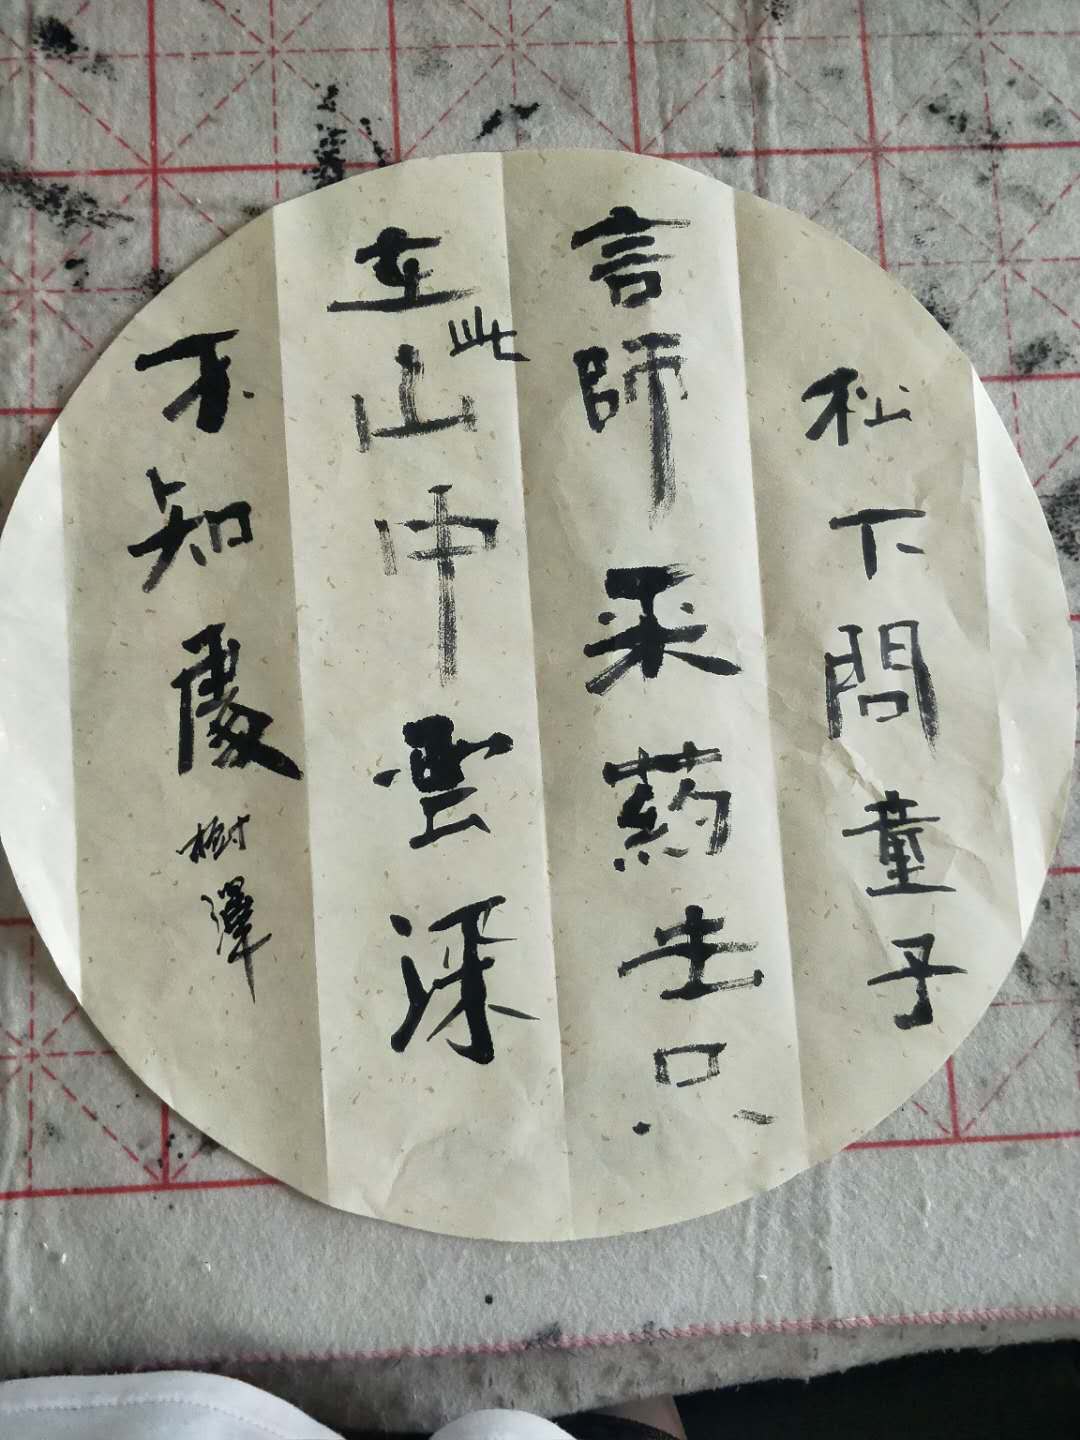 松下問童子
言師采药去只
在此山中雲深
不知處
樹澤